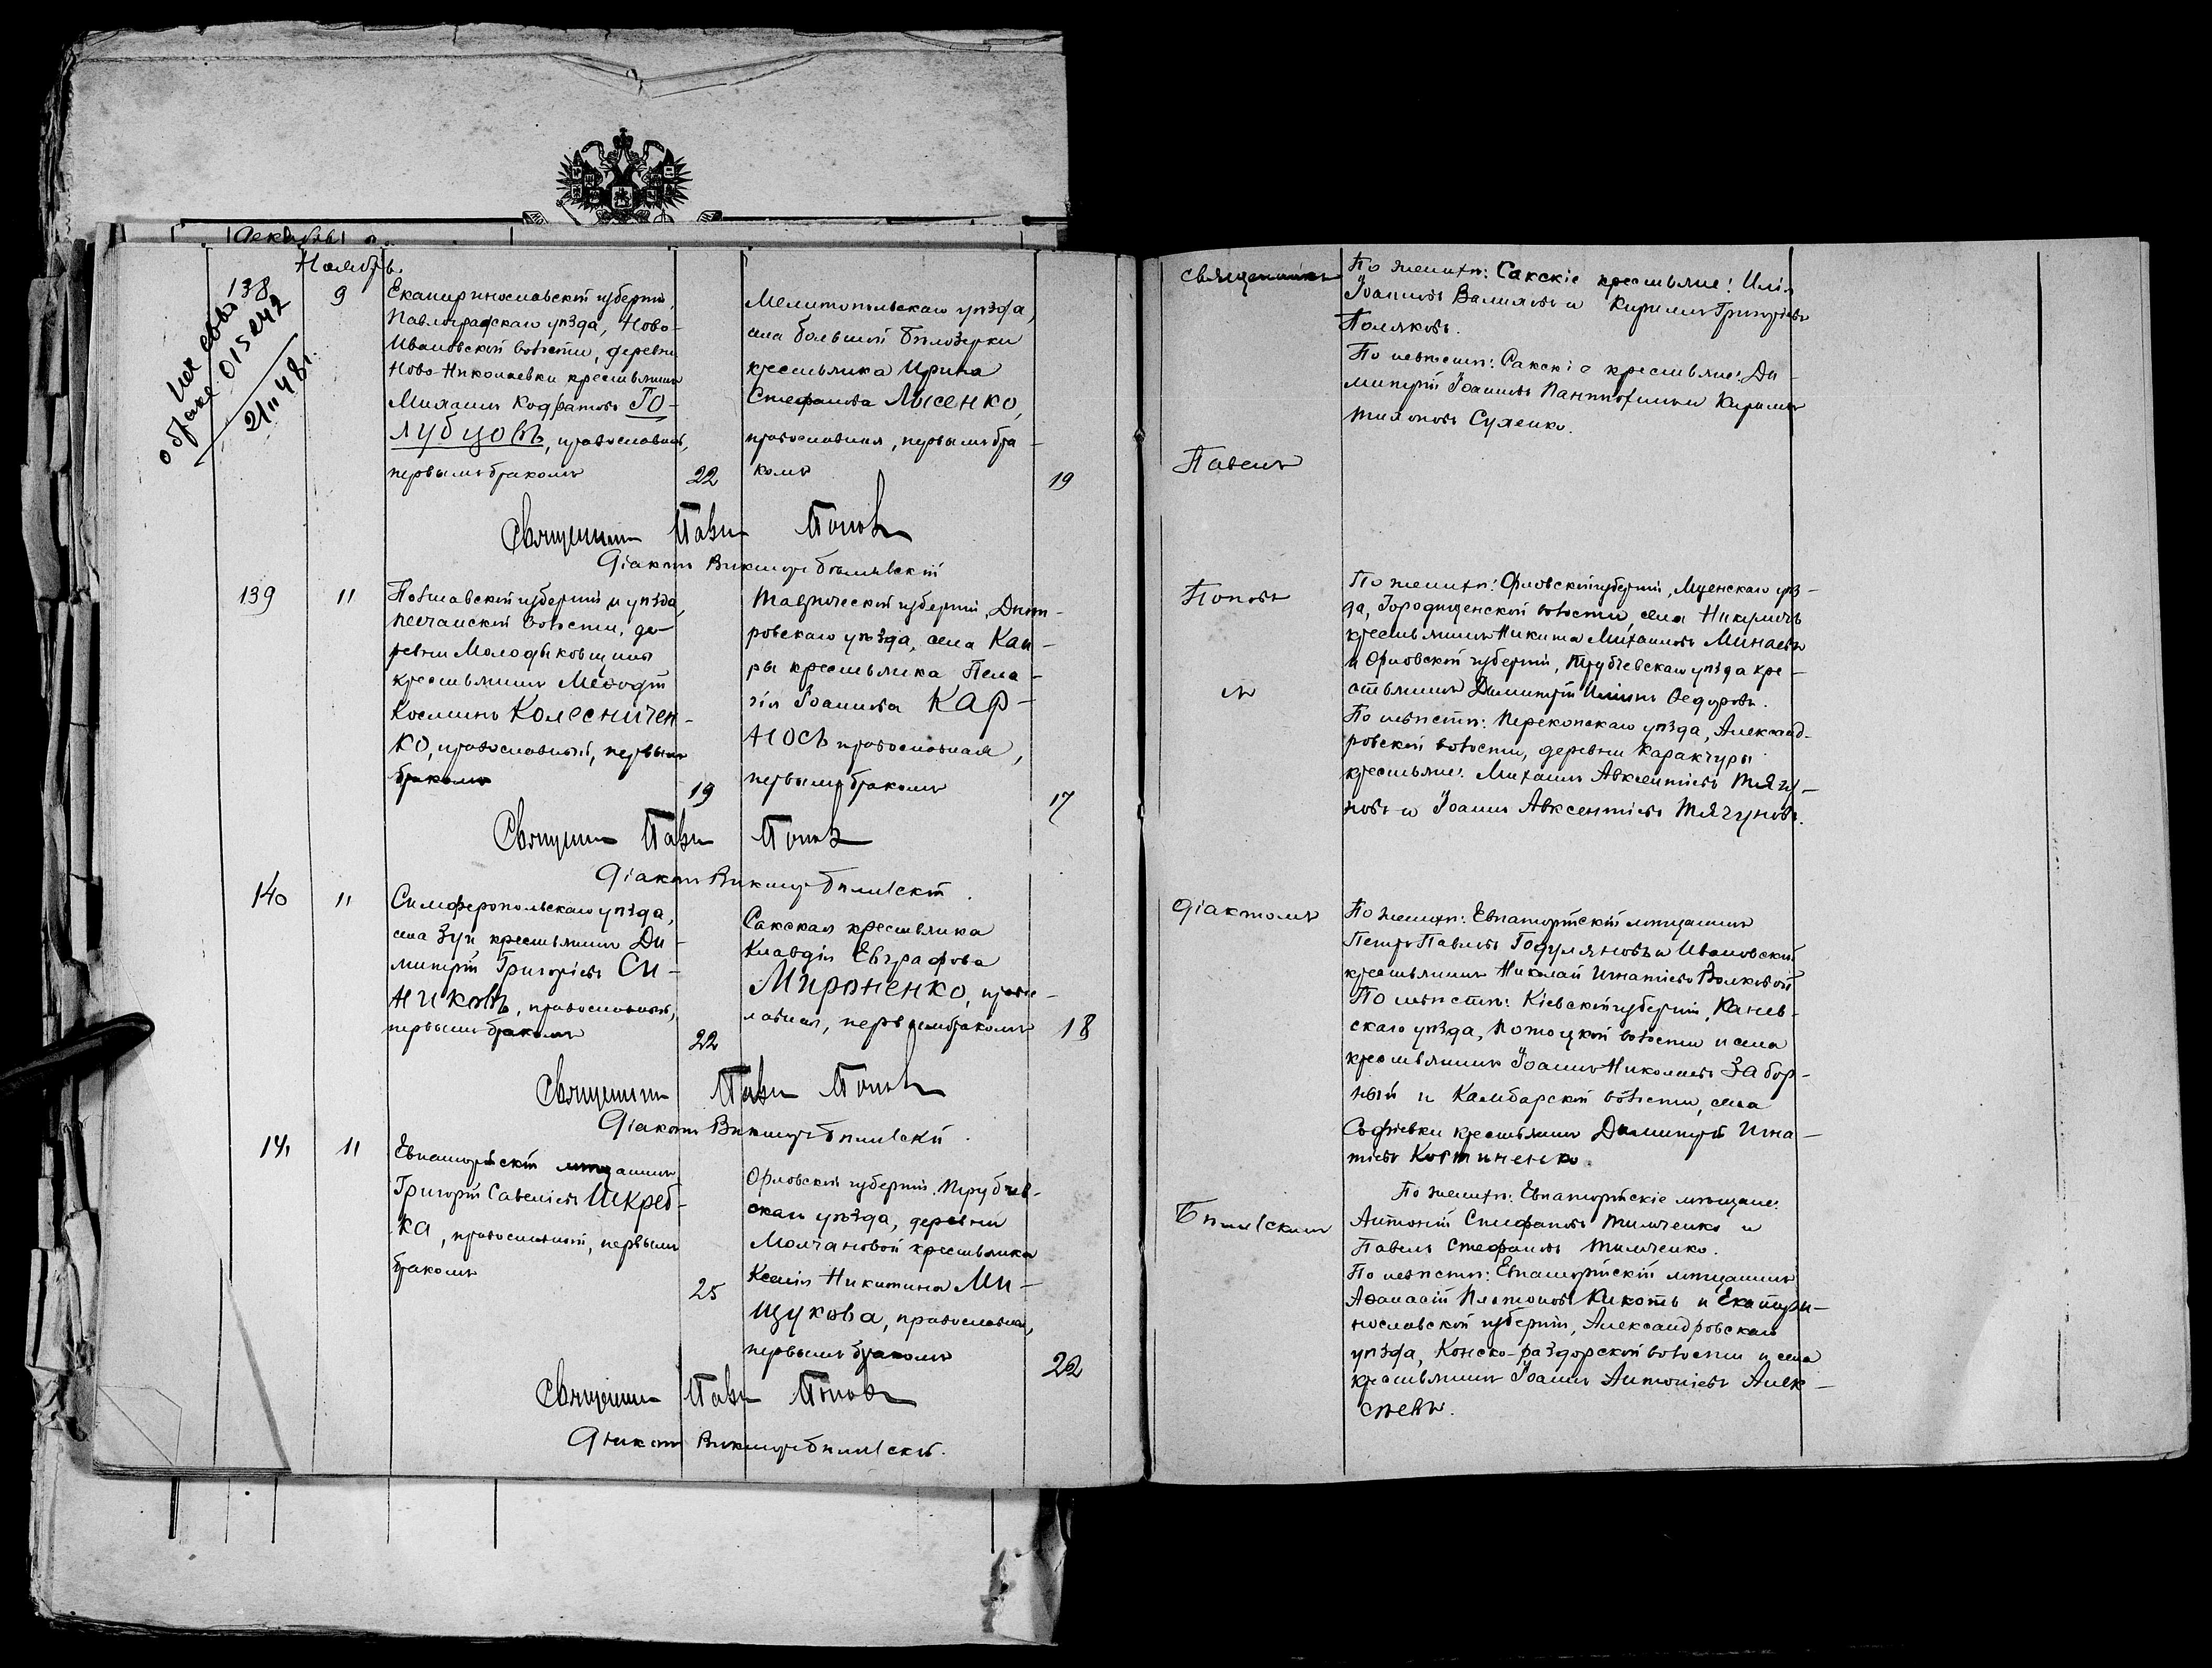 Декабрь
Ноябрь.
138
9
о браке 015242
21/II 48 г.
Екатеринославской губернiи,
Павлоградскаго уѣзда, Ново-
Ивановской волости, деревни
Ново-Николаевки крестьянинъ
Михаилъ Кодратовъ ГО-
ЛУБЦОВЪ, православный,
первымъ бракомъ
22
Мелитопольскаго уѣзда,
села Большой Бѣлозерки
крестьянка Ирина
Стефанова Лысенко,
православная, первымъ бра-
комъ
19
Священникъ Павелъ Поповъ
Дiаконъ Викторъ Бѣлявскiй
139
11
Полтавской губернiи и уѣзда,
Песчанской волости, де-
ревни Молодыковщины
крестьянинъ Меѳодiй
Косминъ Колесничен-
ко, православный, первымъ
бракомъ
19
Таврической губернiи, Днѣп-
ровскаго уѣзда, села Каи-
ры крестьянка Пела-
гiя Iоаннова КАР-
НОСЬ православная,
первымъ бракомъ
17
Священникъ Павелъ Поповъ
Дiаконъ Викторъ Бѣлявскiй
140
11
Симферопольскаго уѣзда,
села Зуи крестьянинъ Ди-
митрiй Григорiевъ СИ-
НИКОВЪ, православный,
первымъ бракомъ
22
Сакская крестьянка
Клавдiя Евграфова
Мироненко, правос-
лавная, первымъ бракомъ
18
Священникъ Павелъ Поповъ
Дiаконъ Викторъ Бѣлявскiй.
141
11
Евпаторiйскiй мѣщанинъ
Григорiй Савелiевъ Шкреб-
ка, православный, первымъ
бракомъ
25
Орловской губернiи, Трубчев-
скаго уѣзда, деревни
Молчановой крестьянка
Ксенiя Никитина Ми-
щукова, православная,
первымъ бракомъ
22
Священникъ Павелъ Поповъ
Дiаконъ Викторъ Бѣлявскiй.
священникъ
Павелъ
Поповъ
и
дiакономъ
Бѣлявскимъ
По женихѣ: Сакскiе крестьяне: Илiя
Iоанновъ и Кириллъ Григорiевъ
Поляковъ.
По невѣстѣ: Сакскiе крестьяне: Ди-
митрiй Iоанновъ и Кириллъ
Тихоновъ Суленко.
По женихѣ: Орловской губернiи, Мценскаго уѣз-
да, Городищенской волости, села
крестьянинъ Никита Михаиловъ Минаевъ
и Орловской губернiи, Трубчевскаго уѣзда кре-
стьянинъ Димитрiй Илiинъ Ѳедоровъ.
По невѣстѣ: Перекопскаго уѣзда, Александ-
ровской волости, деревни Каракчуры
крестьяне: Михаилъ Авксентiевъ Тягу-
новъ и Iоаннъ Авксентiевъ Тягуновъ.
По женихѣ: Евпаторiйскiй мѣщанинъ
Петръ Павловъ Годуляновъ и Ивановскiй
крестьянинъ Николай Игнатiевъ Волковой
По невѣстѣ: Кiевской губернiи, Канев-
скаго уѣзда, Потоцкой волости и села
крестьянинъ Iоаннъ Николаевъ Забор-
ный и Камбарской волости, села
Софiевки крестьянинъ Димитрiй Игна-
тiевъ Костиненко.
По женихѣ: Евпаторiйскiе мѣщане:
Антонiй Стефановъ Тимченко и
Павелъ Стефановъ Тимченко.
По невѣстѣ: Евпаторiйскiй мѣщанинъ
Аѳанасiй Платоновъ Кикоть и Екатери-
нославской губернiи, Александровскаго
уѣзда, Конско-Раздорской волости и села
крестьянинъ Iоаннъ Антонiевъ Алек-
сѣевъ.